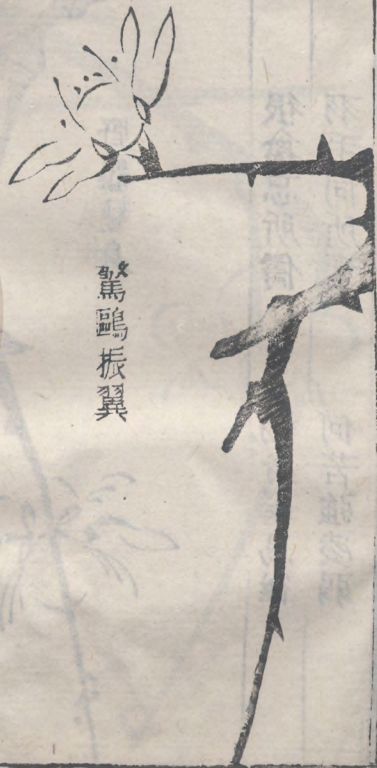 驚鷗振翼